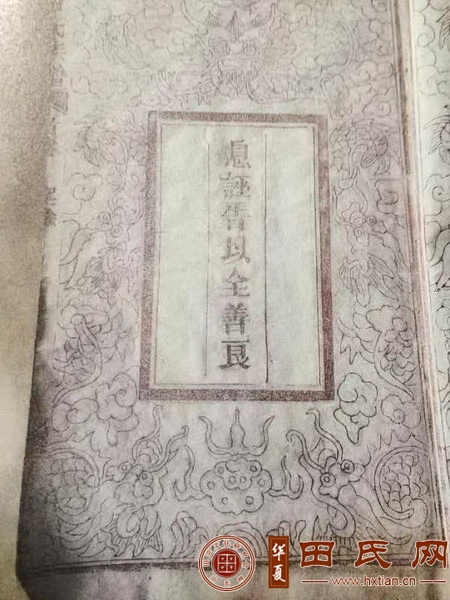 息誣告以全善良
華夏
田氏网
www.hxtian.cn